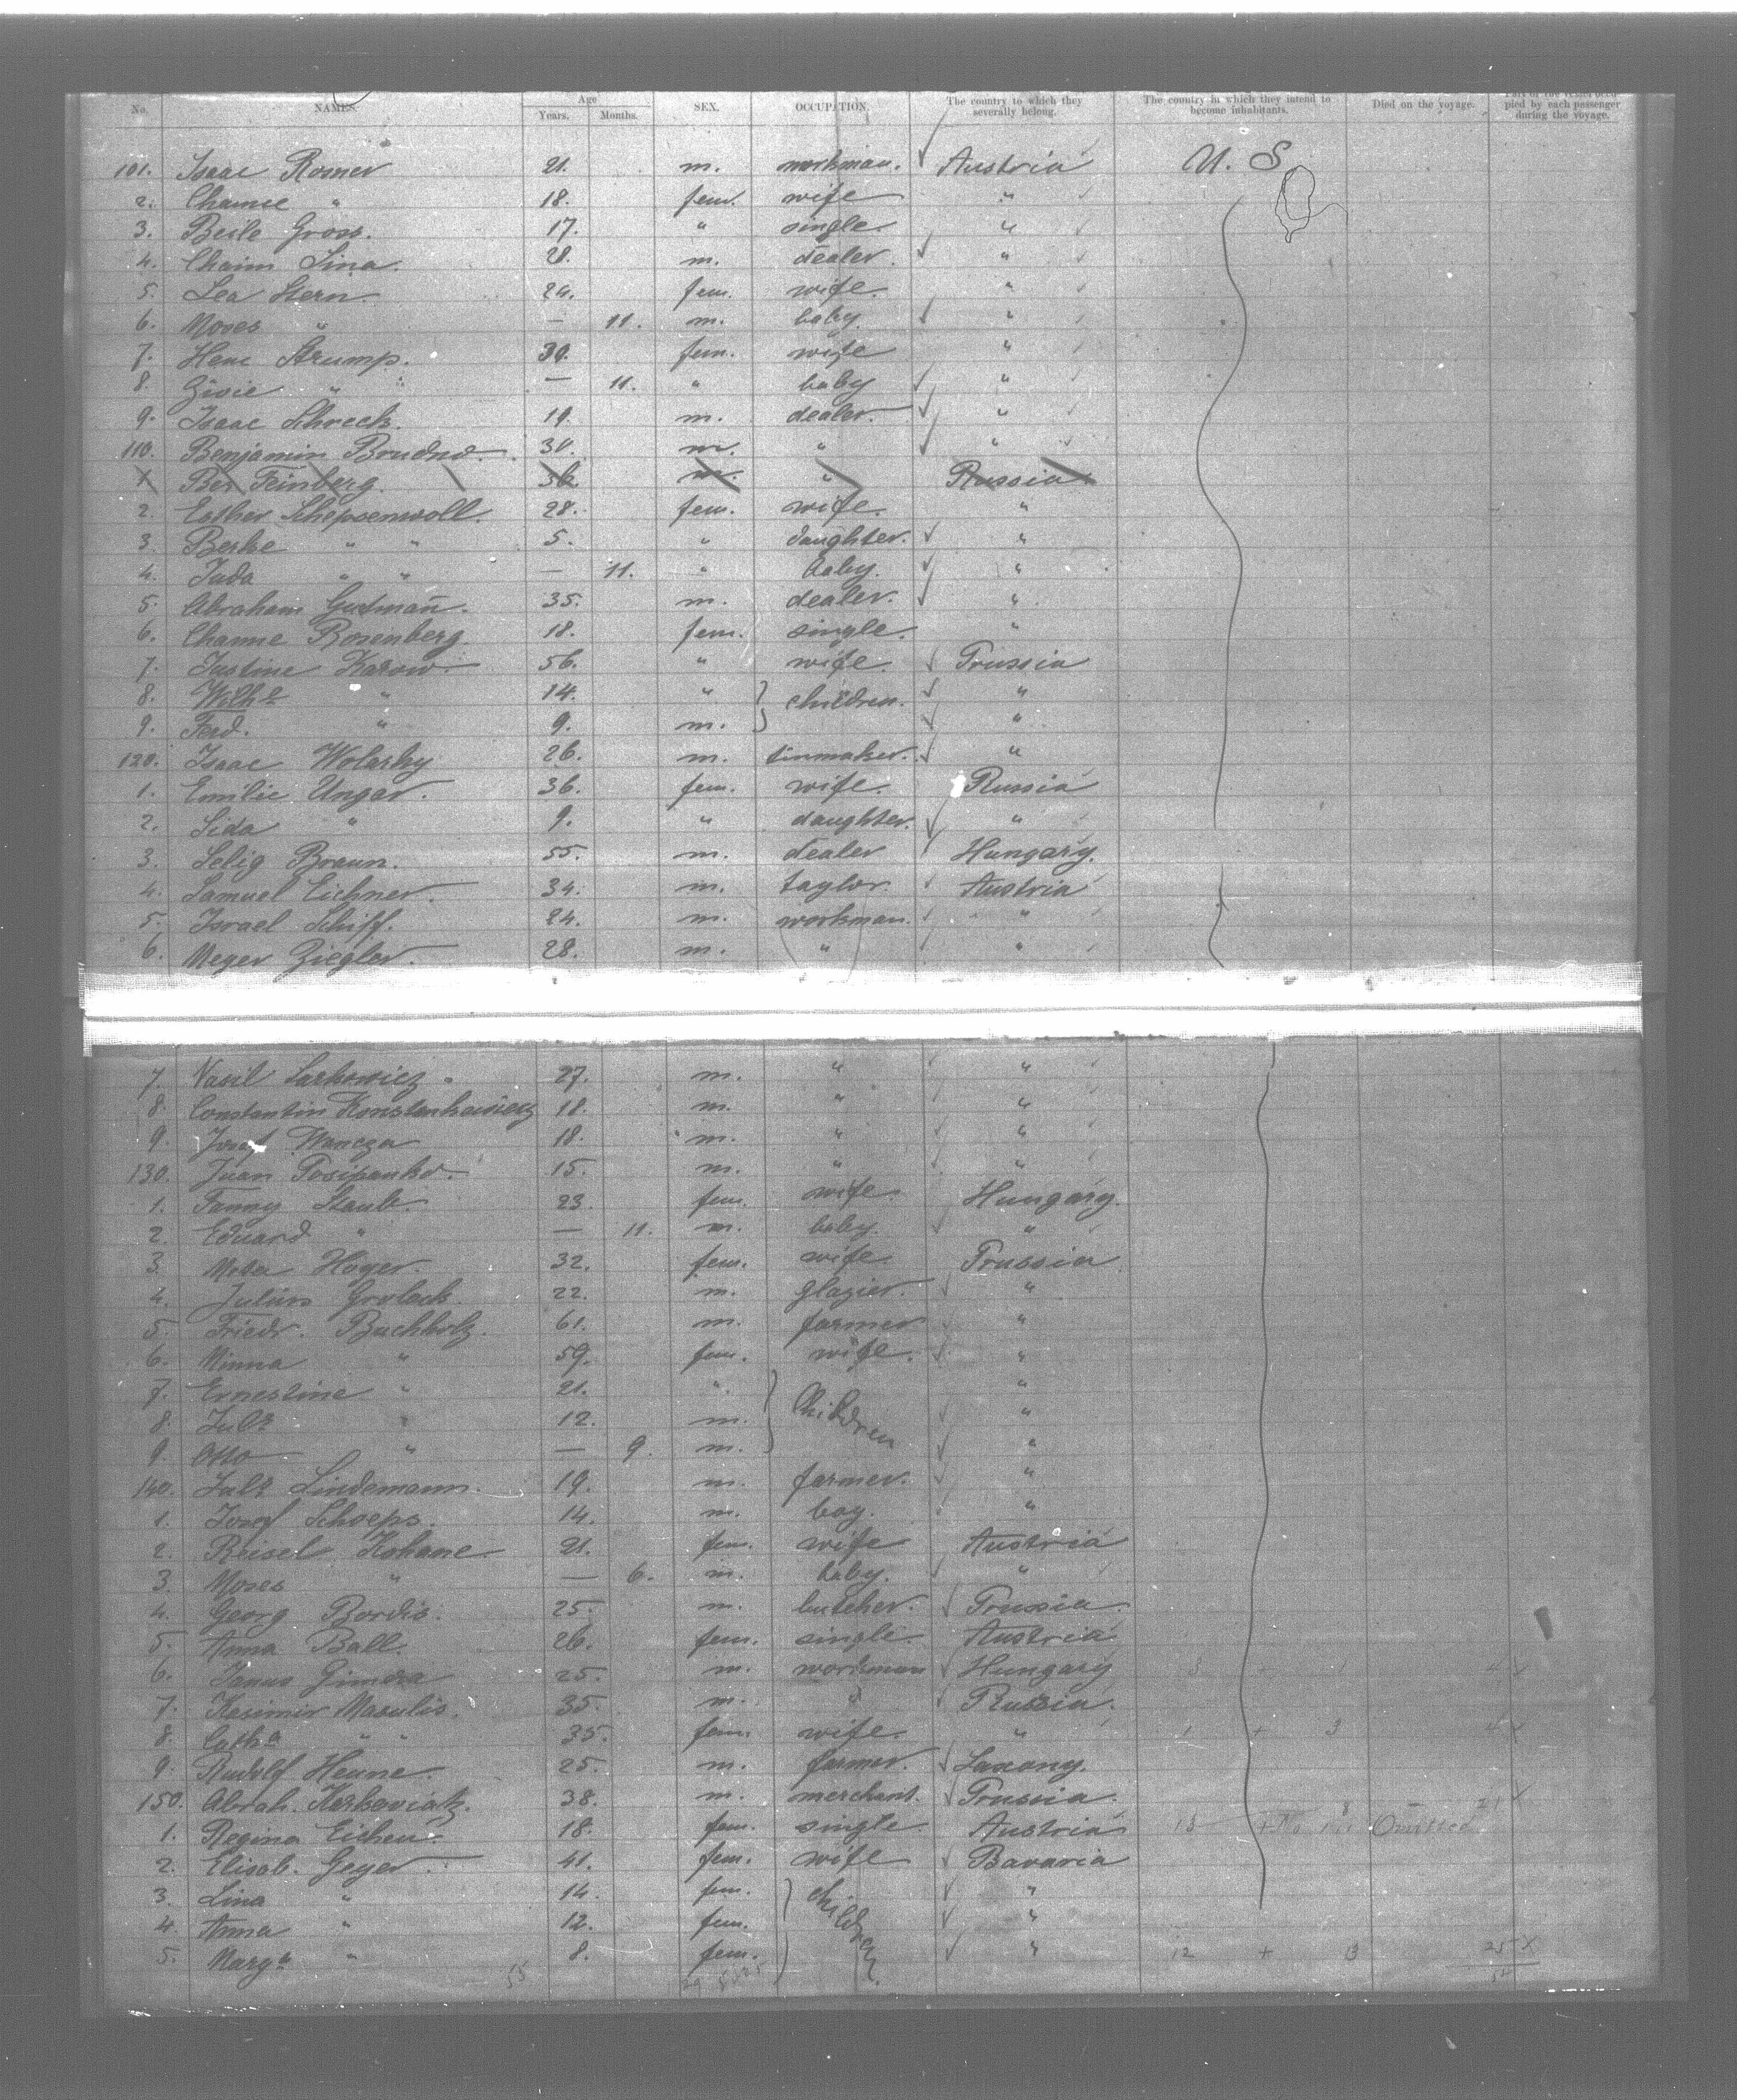 No. NAMES. Age Years. Months. SEX. OCCUPATION. The country to which they severally belong. The country in which they intend to become inhabitants. Died on the voyage. Part of the vessel occupied by each passenger during the voyage.
101. Isaac Rosner 21. m. workman. Austria U. S.
2. Channe " 18. fem. wife "
3. Beile Gross. 17. " single. "
4. Chaim Lina. 28. m. dealer. "
5. Lea Stern 24. fem. wife. "
6. Moses " — 11. m. baby. "
7. Hene Strump. 30. fem. wife "
8. Zivie " — 11. " baby "
9. Isaac Schreck. 19. m. dealer. "
110. Benjamin Brudno. 30. m. " "
1. Ber Feinberg. 36. m. " Russia
2. Esther Schepsenwoll. 28. fem. wife. "
3. Berke " " 5. " daughter. "
4. Juda " " — 11. " baby. "
5. Abraham Gutmañ. 35. m. dealer. "
6. Channe Rosenberg 18. fem. single. "
7. Justine Karow. 56. " wife. Prussia
8. Wilhe " 14. " children. "
9. Ferd. " 9. m. "
120. Isaac Wolasky 26. m. tinmaker. "
1. Emilie Ungar. 36. fem. wife. Russia
2. Lida " 9. " daughter. "
3. Selig Braun. 55. m. dealer Hungary.
4. Samuel Eichner. 34. m. taylor. Austria
5. Israel Schiff. 24. m. workman. "
6. Meyer Ziegler. 28. m. " "
7. Vasil Sarkowicz 27. m. " "
8. Constantin 18. m. " "
9. Josef Wancza 18. m. " "
130. Juan Posipanko. 15. m. " "
1. Fanny Staub. 23. fem. wife. Hungary.
2. Eduard " — 11. m. baby. "
3. Hoyer. 32. fem. wife Prussia
4. Julius Grolack. 22. m. glazier. "
5. Friedr. Buchholz. 61. m. farmer "
6. Minna " 59. fem. wife. "
7. Ernestine " 21. " Children "
8. Juls " 12. m. "
9. Otto " — 9. m. "
140. Juls Lindemann. 19. m. farmer. "
1. Josef Schoeps. 14. m. boy. "
2. Reisel Kohane 21. fem. wife Austria
3. Moses " — 6. m. baby. "
4. Georg Bordis. 25. m. butcher. Prussia.
5. Anna Ball. 26. fem. single. Austria
6. Janus Gimora 25. m. workman Hungary
7. Kasimir Masulis. 35. m. " Russia.
8. Catha " " 35. fem. wife. " 1 + 3 4 x
9. Rudolf Henne. 25. m. farmer. Saxony.
150. Abrah. 38. m. merchant. Prussia.
1. Regina Eichen. 18. fem. single. Austria 13 + No 111 Omitted
2. Elisab. Geyer. 41. fem. wife Bavaria
3. Lina " 14. fem. children. "
4. Anna " 12. fem. "
5. Marga " 8. fem. " 12 + 13 25 x
55